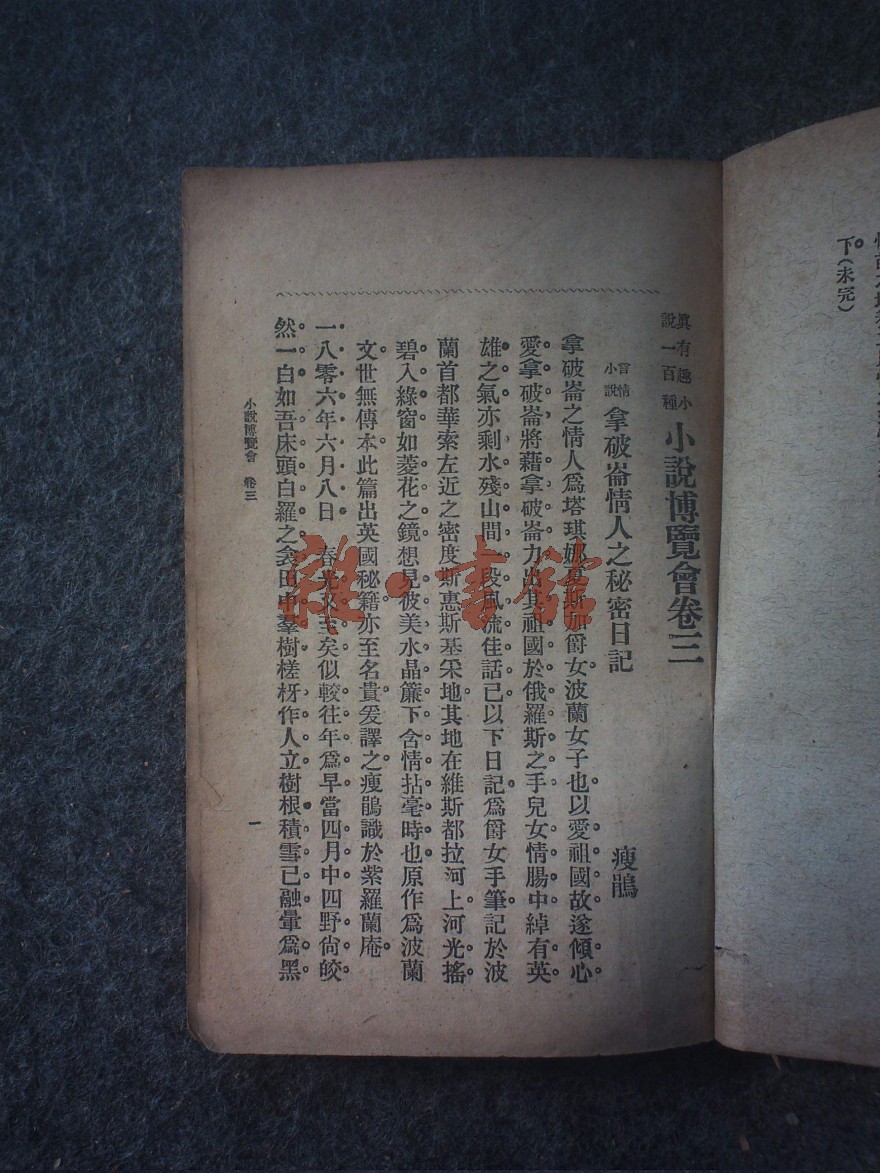 下（未完）
眞有趣小
說一百種
小說博覽會卷三
言情
小說
拿破崙情人之秘密日記
瘦鵑
拿破崙之情人爲塔琪娜夏斯加爵女。波蘭女子也。以愛祖國故。遂傾心
愛拿破崙。將藉拿破崙力出其祖國於俄羅斯之手。兒女情腸中。綽有英
雄之氣。亦剩水殘山間一段風流佳話已。以下日記。爲爵女手筆。記於波
蘭首都華索左近之密度斯惠斯基采地。其地在維斯都拉河上。河光搖
碧。入綠窗如菱花之鏡。想見彼美水晶簾下含情拈毫時也。原作爲波蘭
文。世無傳本。此篇出英國秘籍。亦至名貴。爰譯之。瘦鵑識於紫羅蘭庵。
一八零六年六月八日　春光又至矣。似較往年爲早。當四月中。四野尙皎
然一白。如吾床頭白羅之衾。田中羣樹槎枒。作人立。樹根積雪已融。暈爲黑
小說博覽會　卷三
一
雜·書館